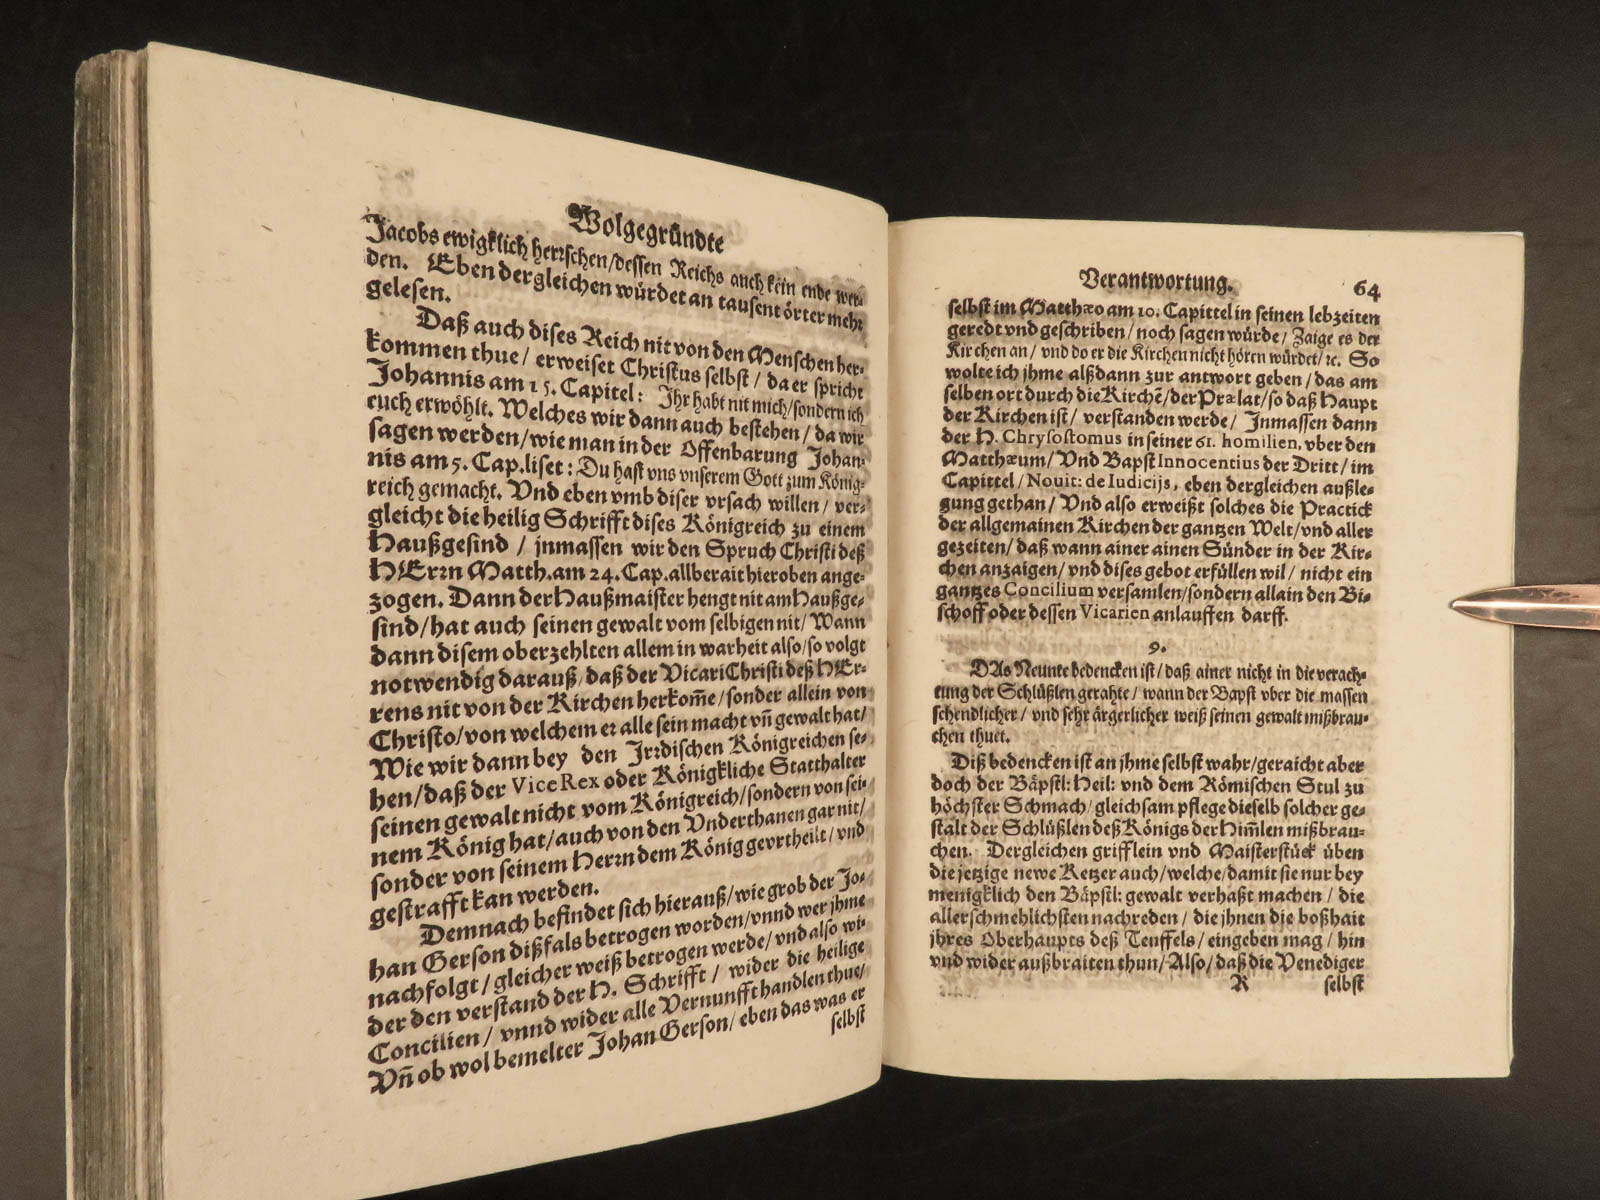 Wolgegründte
Jacobs ewigklich herꝛschen/dessen Reichs auch kein ende wer-
den. Eben dergleichen würdet an tausent örter mehr
gelesen.
Daß auch dises Reich nit von den Menschen her-
kommen thue/ erweiset Christus selbst/ da er spricht
Johannis am 15. Capitel: Ihr habt nit mich/sondern ich
euch erwöhlt. Welches wir dann auch bestehen/ da wir
sagen werden/wie man in der Offenbarung Johan-
nis am 5. Cap.liset: Du hast vns vnserem Gott zum König-
reich gemacht. Vnd eben vmb diser vrsach willen/ ver-
gleicht die heilig Schrifft dises Königreich zu einem
Haußgesind / jnmassen wir den Spruch Christi deß
HErꝛn Matth.am 24. Cap.allberait hieroben ange-
zogen. Dann der Haußmaister hengt nit am Haußge-
sind/hat auch seinen gewalt vom selbigen nit/ Wann
dann disem oberzehlten allem in warheit also/so volgt
notwendig darauß/daß der Vicari Christi deß HEr-
rens nit von der Kirchen herkom̃e/sonder allein von
Christo/von welchem er alle sein macht vñ gewalt hat/
Wie wir dann bey den Irꝛdischen Königreichen se-
hen/daß der Vice Rex oder Königkliche Statthalter
seinen gewalt nicht vom Königreich/sondern von sei-
nem König hat/auch von den Vnderthanen gar nit/
sonder von seinem Herꝛn dem König gevrtheilt/vnd
gestrafft kan werden.
Demnach befindet sich hierauß/wie grob der Jo-
han Gerson dißfals betrogen worden/vnnd wer jhme
nachfolgt/gleicher weiß betrogen werde/vnd also wi-
der den verstand der H. Schrifft/ wider die heilige
Concilien/ vnnd wider alle Vernunfft handlen thue/
Vñ ob wol bemelter Johan Gerson/ eben das was er
selbst
Verantwortung. 64
selbst im Matthæo am 10. Capittel in seinen lebzeiten
geredt vnd geschriben/noch sagen würde/ Zaige es der
Kirchen an/ vnd do er die Kirchen nicht hören würdet/ ꝛc. So
wolte ich jhme alßdann zur antwort geben/das am
selben ort durch die Kirchẽ/der Prælat/so daß Haupt
der Kirchen ist/ verstanden werde/ Inmassen dann
der H. Chrysostomus in seiner 61. homilien, vber den
Matthæum/ Vnd Bapst Innocentius der Dritt/ im
Capittel/ Nouit: de Iudicijs, eben dergleichen außle-
gung gethan/ Vnd also erweißt solches die Practick
der allgemainen Kirchen der gantzen Welt/vnd aller
gezeiten/daß wann ainer ainen Sünder in der Kir-
chen anzaigen/vnd dises gebot erfüllen wil/ nicht ein
gantzes Concilium versamlen/sondern allain den Bi-
schoff oder dessen Vicarien anlauffen darff.
9.
DAs Neunte bedencken ist/ daß ainer nicht in die verach-
tung der Schlüßlen gerahte/ wann der Bapst vber die massen
schendlicher/ vnd sehr ärgerlicher weiß seinen gewalt mißbrau-
chen thuet.
Diß bedencken ist an jhme selbst wahr/geraicht aber
doch der Bäpstl: Heil: vnd dem Römischen Stul zu
höchster Schmach/gleichsam pflege dieselb solcher ge-
stalt der Schlüßlen deß Königs der Him̃len mißbrau-
chen. Dergleichen grifflein vnd Maisterstück üben
die jetzige newe Ketzer auch/welche/damit sie nur bey
menigklich den Bäpstl: gewalt verhaßt machen/ die
allerschmehlichsten nachreden/ die jhnen die boßhait
jhres Oberhaupts deß Teuffels/eingeben mag/ hin
vnd wider außbraiten thun/Also/daß die Venediger
R selbst